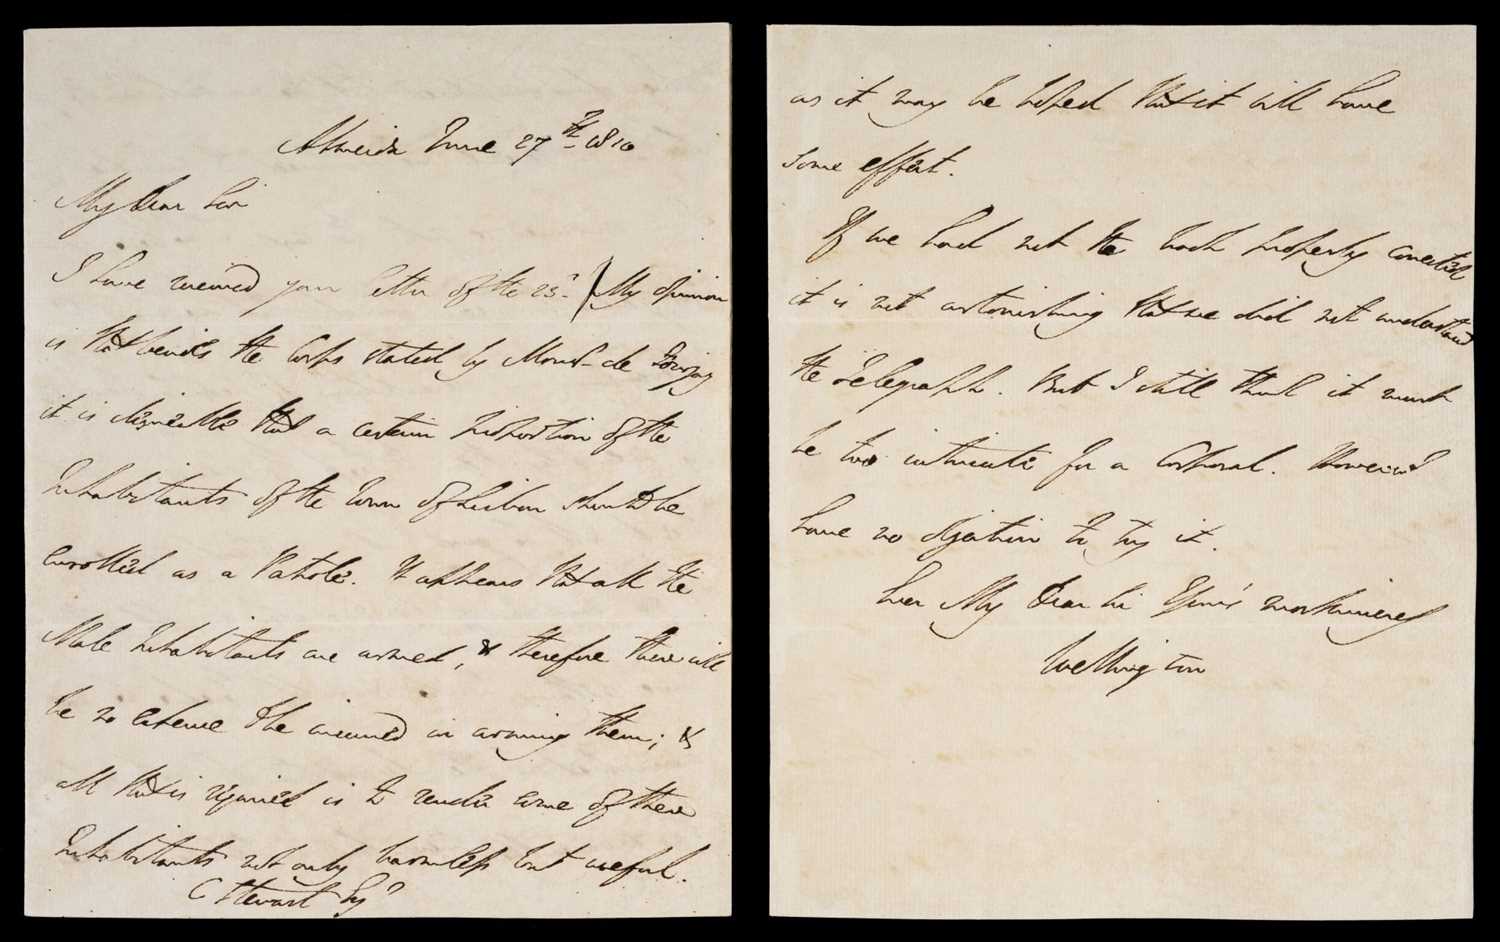 Almeida June 27th 1810
My dear Sir
I have received your letter of the 25th. My opinion
is that besides the Corps stated by Monsr. de Forjaz
it is desireable that a certain proportion of the
Inhabitants of the Town of Lisbon should be
enrolled as a Patrole. It appears that all the
Male Inhabitants are armed, & therefore there will
be no expence to be incurred in arming them; &
all that is required is to render some of these
Inhabitants not only harmless but useful.
C Stuart Esqr
as it may be hoped that it will have
some effect.
If we had not the book properly corrected
it is not astonishing that we did not understand
the Telegraph. But I still think it much
be too intricate for a Corporal. However I
have no objection to try it.
Ever My Dear Sir Yours most sincerely
Wellington